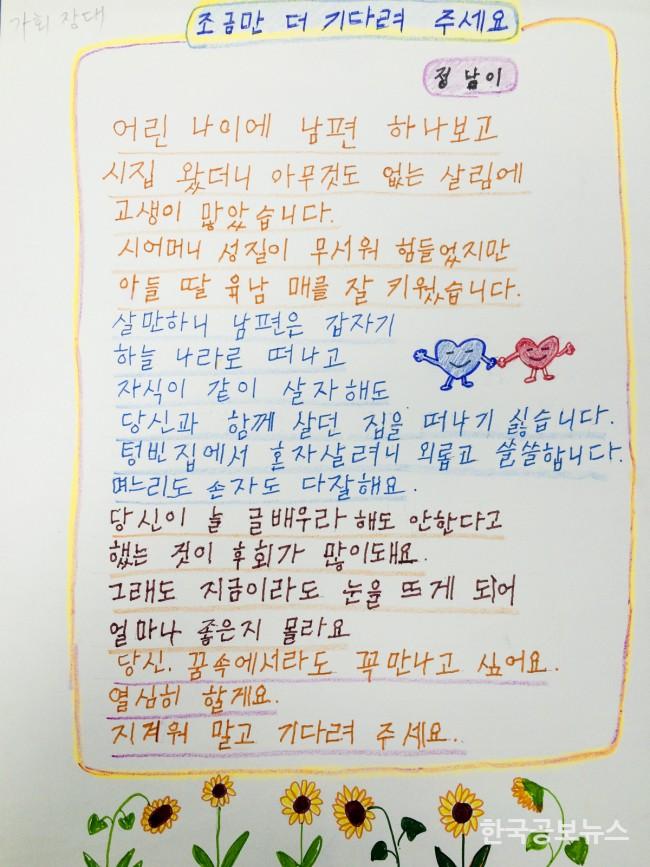 가회 장대
조금만 더 기다려 주세요
정남이
어린 나이에 남편 하나보고
시집 왔더니 아무것도 없는 살림에
고생이 많았습니다.
시어머니 성질이 무서워 힘들었지만
아들 딸 육남 매를 잘 키웠습니다.
살만하니 남편은 갑자기
하늘 나라로 떠나고
자식이 같이 살자해도
당신과 함께 살던 집을 떠나기 싫습니다.
텅빈집에서 혼자살려니 외롭고 쓸쓸합니다.
며느리도 손자도 다잘해요.
당신이 늘 글배우라 해도 안한다고
했는 것이 후회가 많이돼요.
그래도 지금이라도 눈을 뜨게 되어
얼마나 좋은지 몰라요
당신. 꿈속에서라도 꼭 만나고 싶어요.
열심히 할게요.
지겨워 말고 기다려 주세요.
한국공보뉴스